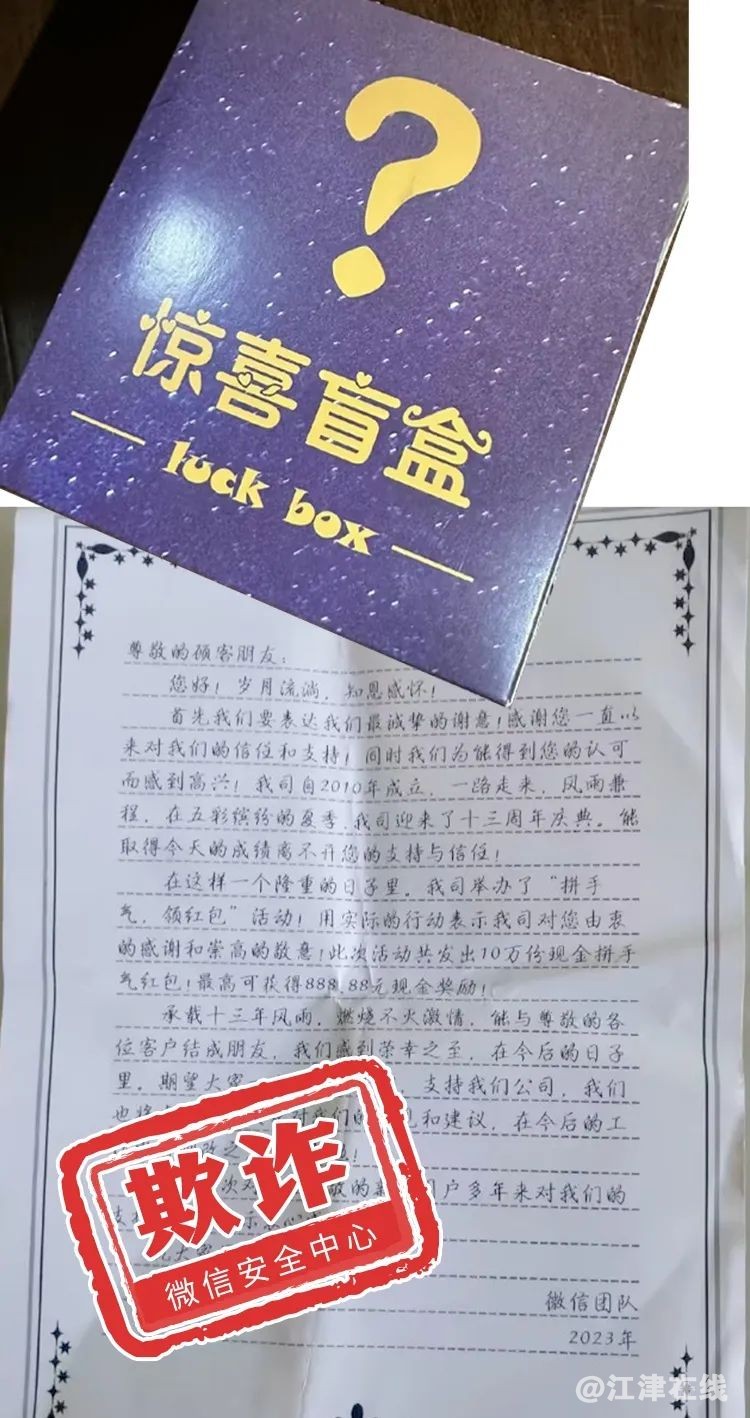 ?
惊喜盲盒
luck box
尊敬的顾客朋友:
您好!岁月流淌,知恩感怀!
首先我们要表达我们最诚挚的谢意!感谢您一直以
来对我们的信任和支持!同时我们为能得到您的认可
而感到高兴!我司自2010年成立,一路走来,风雨兼
程,在五彩缤纷的夏季,我司迎来了十三周年庆典。能
取得今天的成绩离不开您的支持与信任!
在这样一个隆重的日子里,我司举办了“拼手
气,领红包”活动!用实际的行动表示我司对您由衷
的感谢和崇高的敬意!此次活动共发出10万份现金拼手
气红包!最高可获得888.88元现金奖励!
承载十三年风雨,燃烧不火激情,能与尊敬的各
位客户结成朋友,我们感到荣幸之至,在今后的日子
里,期望大家 支持我们公司,我们
也将 对我们的 见和建议,在今后的工
之
次对 敬的 户多年来对我们的
支持
大家
欺诈
微信安全中心
微信团队
2023年
@江津在线